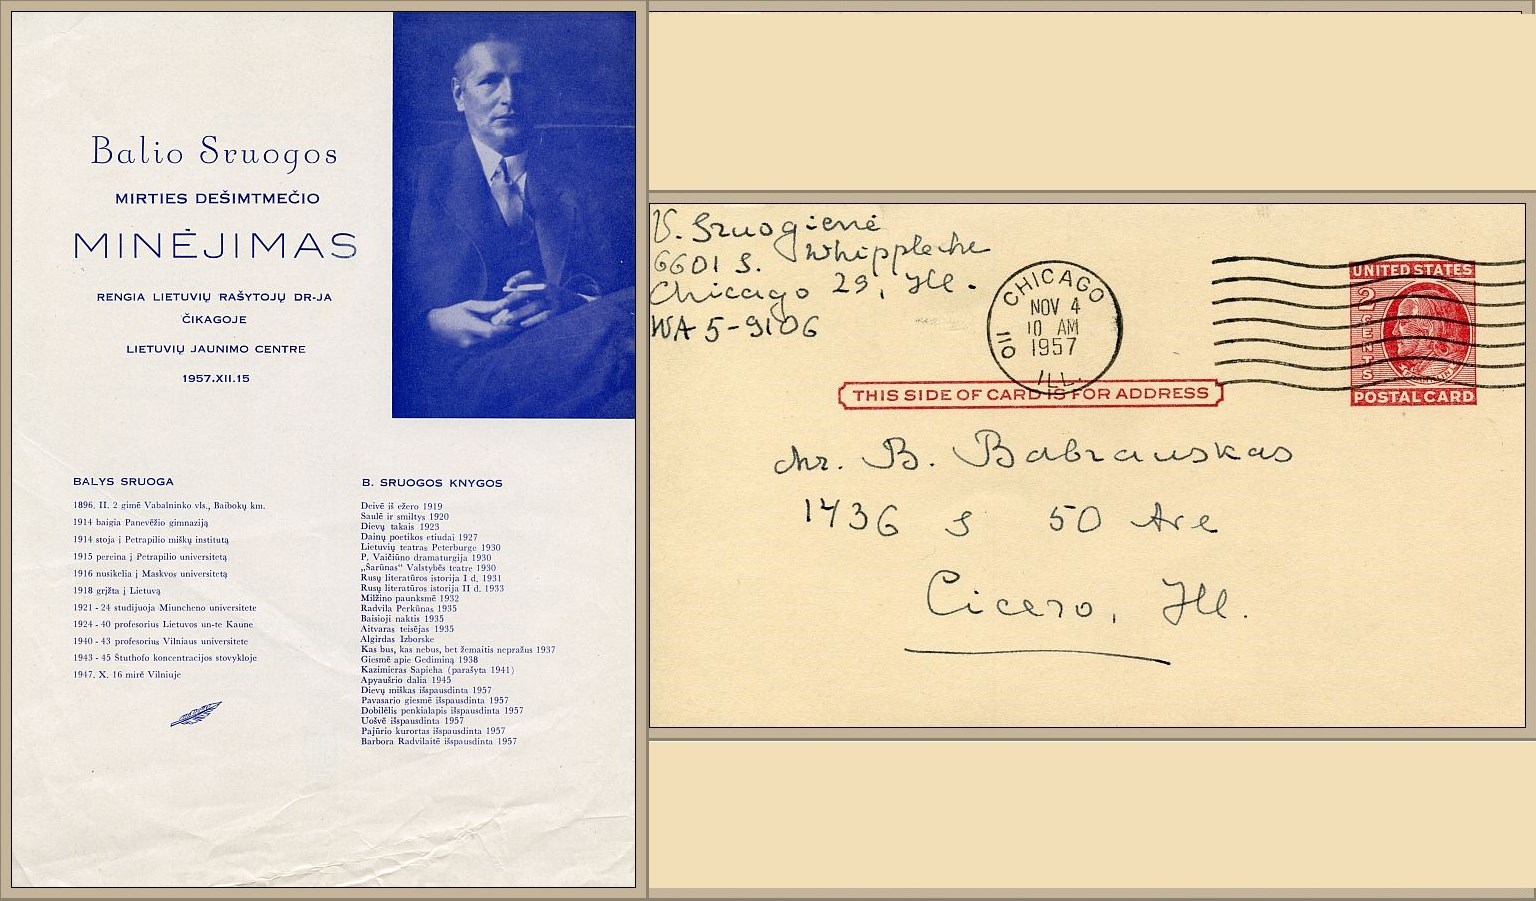 Balio Sruogos
MIRTIES DEŠIMTMEČIO
MINĖJIMAS
RENGIA LIETUVIŲ RAŠYTOJŲ DR-JA
ČIKAGOJE
LIETUVIŲ JAUNIMO CENTRE
1957.XII.15
BALYS SRUOGA
1896. II. 2 gimė Vabalninko vls., Baibokų km.
1914 baigia Panevėžio gimnaziją
1914 stoja į Petrapilio miškų institutą
1915 pereina į Petrapilio universitetą
1916 nusikelia į Maskvos universitetą
1918 grįžta į Lietuvą
1921 - 24 studijuoja Miuncheno universitete
1924 - 40 profesorius Lietuvos un-te Kaune
1940 - 43 profesorius Vilniaus universitete
1943 - 45 Štuthofo koncentracijos stovykloje
1947. X. 16 mirė Vilniuje
B. SRUOGOS KNYGOS
Deivė iš ežero 1919
Saulė ir smiltys 1920
Dievų takais 1923
Dainų poetikos etiudai 1927
Lietuvių teatras Peterburge 1930
P. Vaičiūno dramaturgija 1930
„Šarūnas" Valstybės teatre 1930
Rusų literatūros istorija I d. 1931
Rusų literatūros istorija II d. 1933
Milžino paunksmė 1932
Radvila Perkūnas 1935
Baisioji naktis 1935
Aitvaras teisėjas 1935
Algirdas Izborske
Kas bus, kas nebus, bet žemaitis nepražus 1937
Giesmė apie Gediminą 1938
Kazimieras Sapieha (parašyta 1941)
Apyaušrio dalia 1945
Dievų miškas išspausdinta 1957
Pavasario giesmė išspausdinta 1957
Dobilėlis penkialapis išspausdinta 1957
Uošvė išspausdinta 1957
Pajūrio kurortas išspausdinta 1957
Barbora Radvilaitė išspausdinta 1957
V. Sruogienė
6601 S. Whipple
Chicago 29, Ill.
WA 5-9106
CHICAGO
NOV 4
10 AM
1957
ILL.
UNITED STATES
2 CENTS
POSTAL CARD
THIS SIDE OF CARD IS FOR ADDRESS
B. Babrauskas
1436 S 50 Ave
Cicero, Ill.